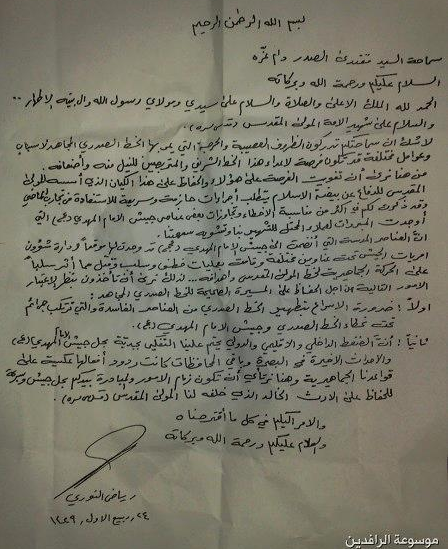 بسم الله الرحمن الرحيم
سماحة السيد مقتدى الصدر دام عزه
السلام عليكم ورحمة الله وبركاته
الحمد لله الملك الاعلى والصلاة والسلام على سيدي ومولاي رسول الله وال بيته الاطهار ..
والسلام على شهيد الامة المولى المقدس (قدس سره)
لاشك ان سماحتكم تدركون الظروف العصيبة والحرجة التي يمر بها الخط الصدري المجاهد لاسباب
وعوامل مختلفة قد تكون فرصة لاعداء هذا الخط الشريف والمتربصين للنيل منه واضعافه
من هنا نرى ان تفويت الفرصة على هؤلاء والحفاظ على هذا الكيان الذي اسسه المولى
المقدس للدفاع عن بيضة الاسلام يتطلب اجراءات حازمة وسريعة للاستفادة من تجارب الماضي
وقد ذكرت لكم في اكثر من مناسبة الاخطاء وتجاوزات بعض عناصر جيش الامام المهدي (عج) التي
اوجدت المبررات لعداء المحتل للتشهير بنا وتشويه سمعتنا
ان العناصر المندسة التي انضمت الى جيش الامام المهدي (عج) قد وجدت لها موقعا وادارة شؤون
امريات الجيش تحت عناوين مختلفة وقامت بعمليات خطف وسلب وقتل مما اثر سلبا
على الحركة الجماهيرية لخط المولى المقدس واهدافه ... لذلك نرى ان تأخذون بنظر الاعتبار
الامور التالية من اجل الحفاظ على المسيرة الصالحة للخط الصدري المجاهد :
اولاً : ضرورة الاسراع بتطهير الخط الصدري من العناصر الفاسدة والتي ترتكب جرائم
تحت غطاء الخط الصدري وجيش الامام المهدي (عج)
ثانياً : ان الضغط الداخلي والاقليمي والدولي يحتم علينا التفكير بجدية بحل جيش الامام المهدي (عج)
والاحداث الاخيرة في البصرة وباقي المحافظات كانت ردود افعالها عكسية على
قواعدنا الجماهيرية وهنا نرتأي ان تكون زمام الامور والمبادرة بيدكم بحل جيش
للحفاظ على الارث الخالد الذي خلفه لنا المولى المقدس (قدس سره)
والامر اليكم في كل ما اقترحناه
والسلام عليكم ورحمة الله وبركاته
رياض النوري
٢٤ ربيع الاول ١٤٢٩
موسوعة الرافدين